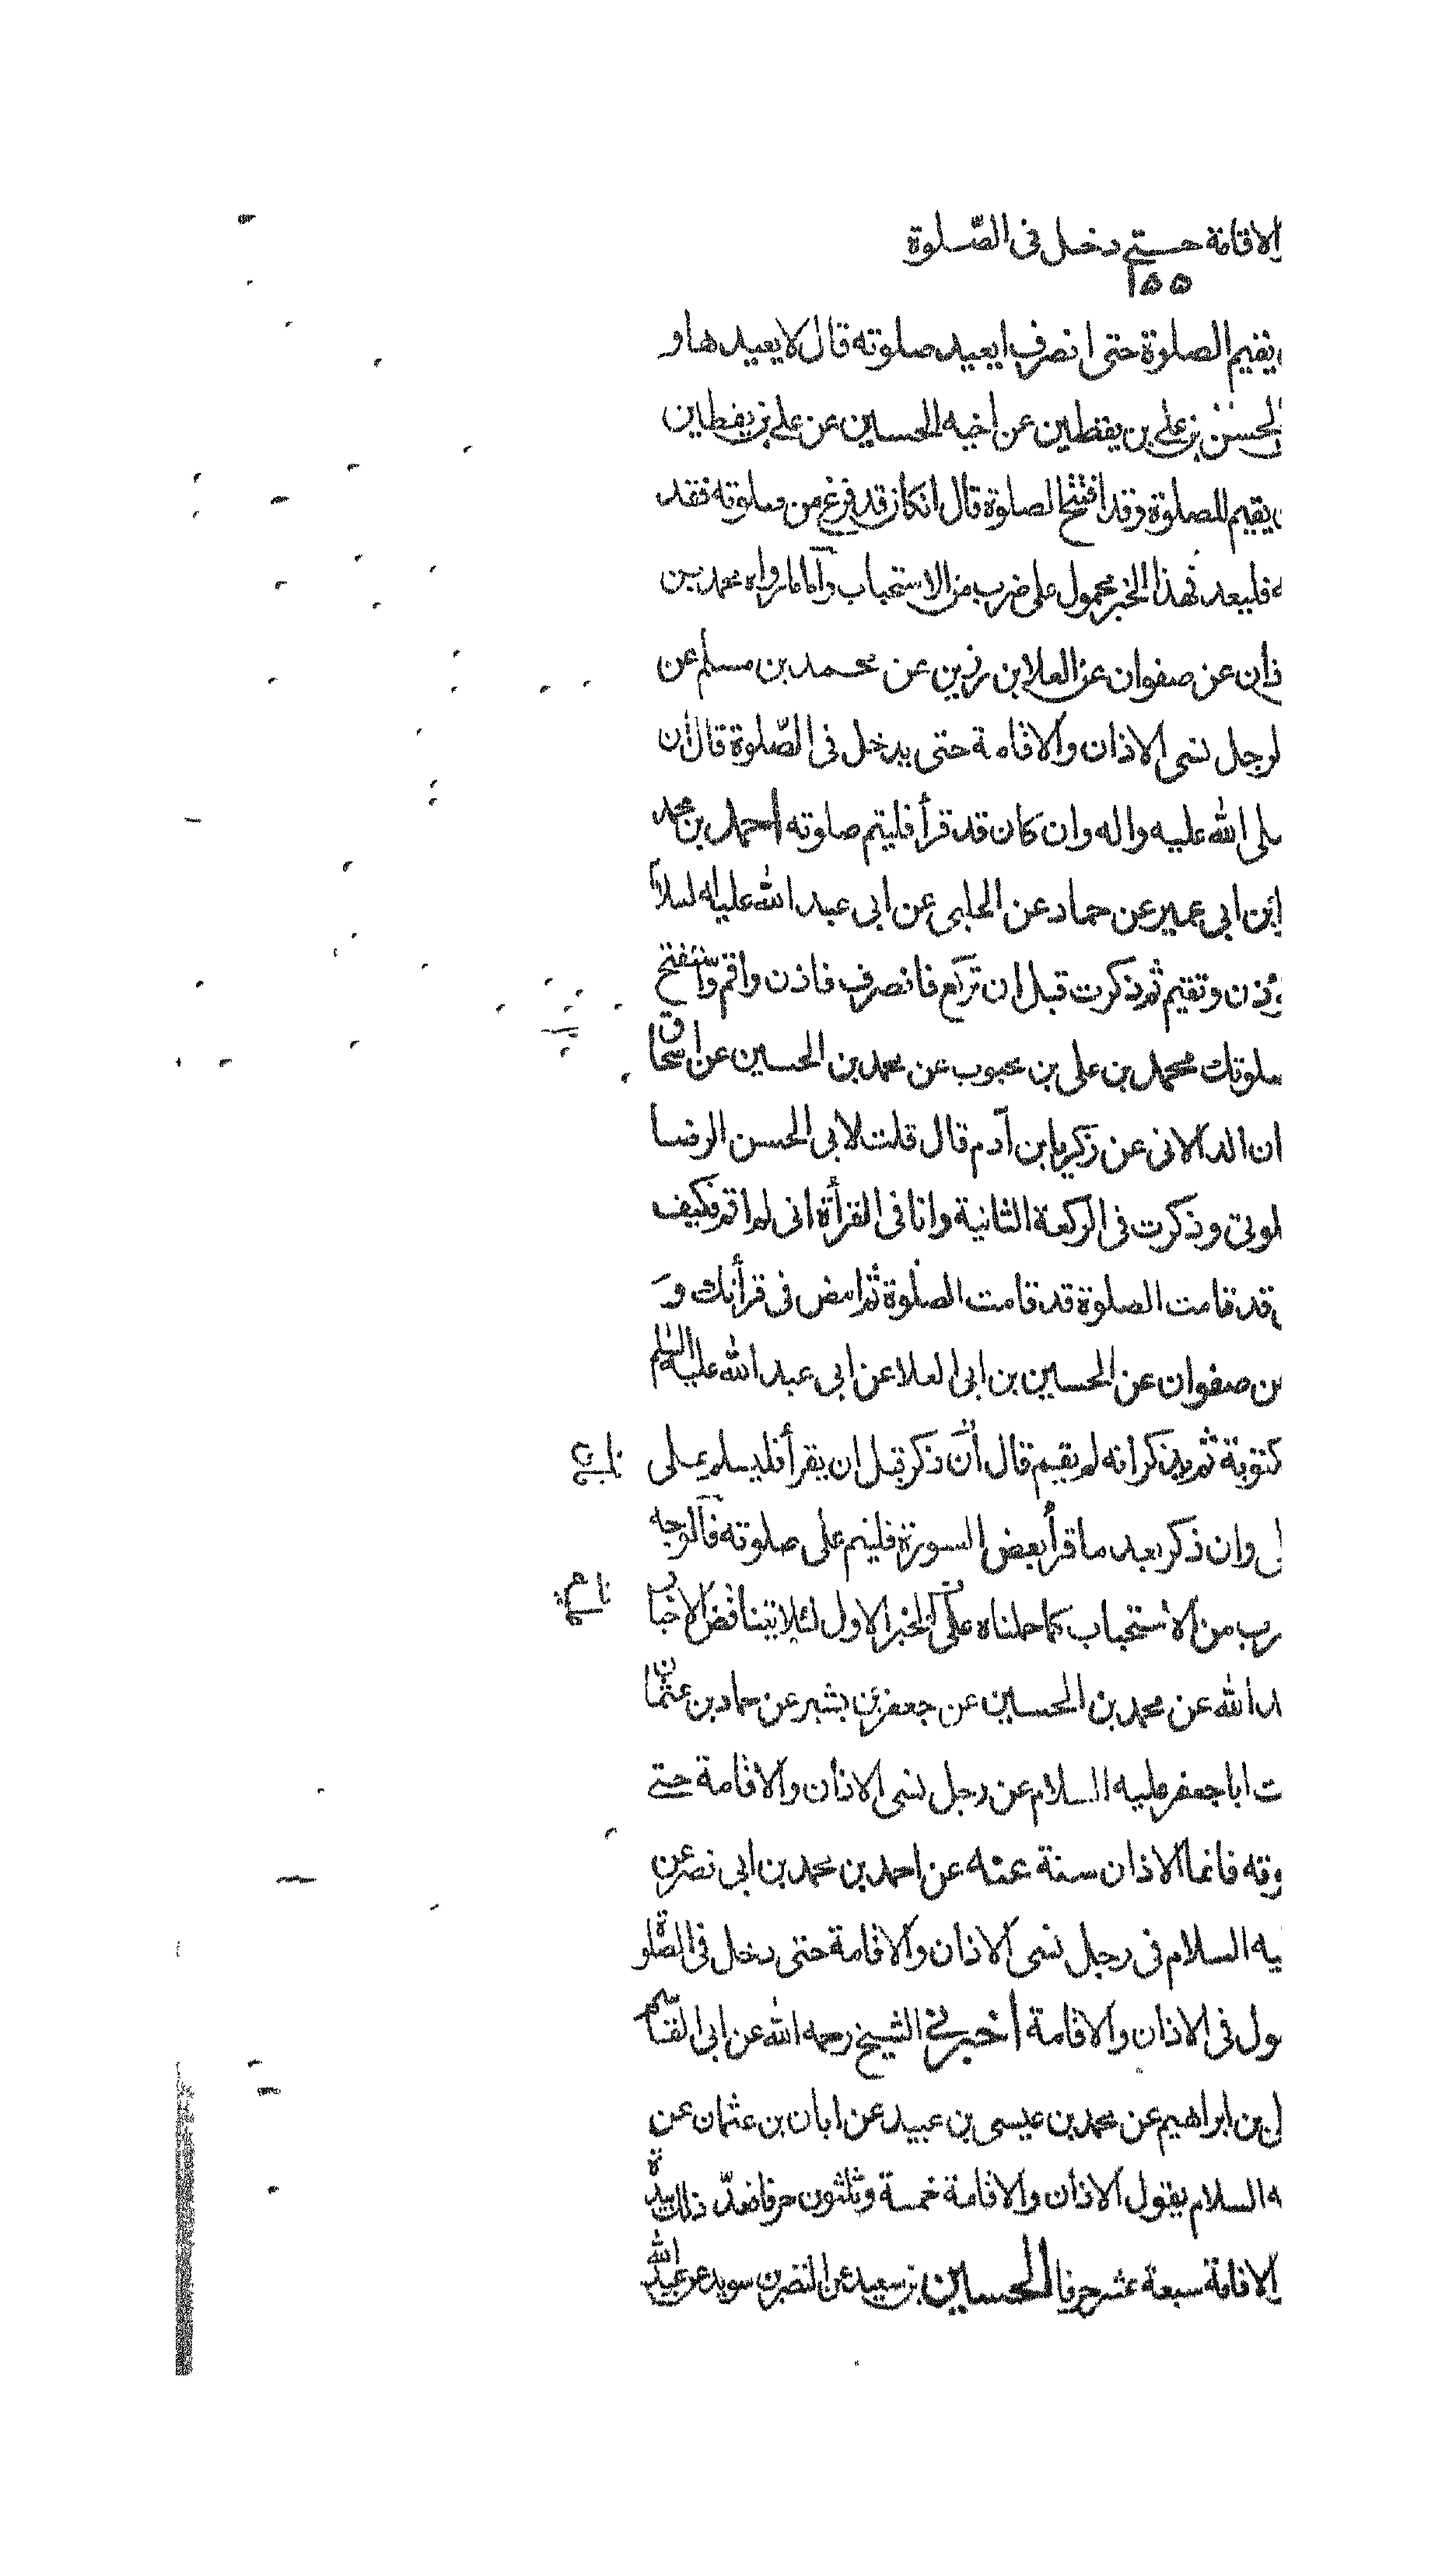 والاقامة حتى دخل فى الصّلوة
١٥٥
يقيم الصلوة حتى انصرف ايعيد صلوته قال لا يعيدها و
الحسن بن على بن يقطين عن اخيه الحسين عن على بن يقطين
يقيم للصلوة وقد افتتح الصلوة قال ان كان قد فرغ من صلوته فقد
فليعد فهذا الخبر محمول على ضرب من الاستحباب واما ما رواه محمد بن
ذان عن صفوان عن العلا بن رزين عن محمد بن مسلم عن
لرجل نسى الاذان والاقامة حتى يدخل فى الصّلوة قال ان
صلى الله عليه واله وان كان قد قرأ فليتم صلوته احمد بن محمد
ابن ابى عمير عن حماد عن الحلبى عن ابى عبد الله عليه السلام
تؤذن وتقيم ثم ذكرت قبل ان تركع فانصرف فاذن واقم واستفتح
صلوتك محمد بن على بن محبوب عن محمد بن الحسين عن اسحاق
ان الدالانى عن زكريا بن آدم قال قلت لابى الحسن الرضا
لوتى وذكرت فى الركعة الثانية وانا فى القرأة انى لم اقم فكيف
قد قامت الصلوة قد قامت الصلوة ثم امض فى قرأتك و
عن صفوان عن الحسين بن ابى العلا عن ابى عبد الله عليه السلم
كتوبة ثم يذكر انه لم يقيم قال ان ذكر قبل ان يقرأ فليسلم يصلى
وان ذكر بعد ما قرأ بعض السورة فليتم على صلوته فالوجه
رب من الاستحباب كما حملناه عليه الخبر الاول لئلا يتناقض الاخبار
د الله عن محمد بن الحسين عن جعفر بن بشير عن حماد بن عثمان
ت ابا جعفر عليه السلام عن رجل نسى الاذان والاقامة حتى
وته فانما الاذان سنة عنه عن احمد بن محمد بن ابى نصر عن
ليه السلام فى رجل نسى الاذان والاقامة حتى دخل فى الصّلوة
ول فى الاذان والاقامة اخبرنى الشيخ رحمه الله عن ابى القاسم
بن ابراهيم عن محمد بن عيسى بن عبيد عن ابان بن عثمان عن
ه السلام يقول الاذان والاقامة خمسة وثلثون حرفا فعدّ ذلك بيده
والاقامة سبعة عشر حرفا الحسين بن سعيد عن النضر بن سويد عن عبد الله